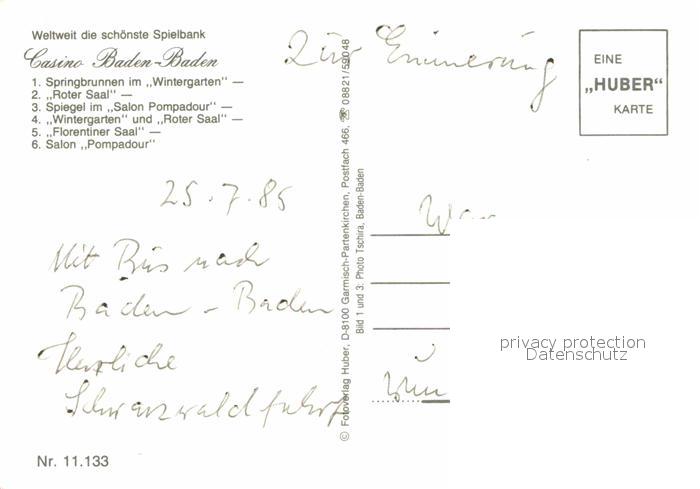 Weltweit die schönste Spielbank
Casino Baden-Baden
1. Springbrunnen im „Wintergarten" —
2. „Roter Saal" —
3. Spiegel im „Salon Pompadour" —
4. „Wintergarten" und „Roter Saal" —
5. „Florentiner Saal" —
6. Salon „Pompadour"
Zur Erinnerung
EINE
„HUBER"
KARTE
25.7.85
Mit Bus nach
Baden - Baden
Herzliche
Schwarzwaldfahrt
© Fotoverlag Huber, D-8100 Garmisch-Partenkirchen, Postfach 466, ☏ 08821/59048
Bild 1 und 3: Photo Tschira, Baden-Baden
privacy protection
Datenschutz
Nr. 11.133